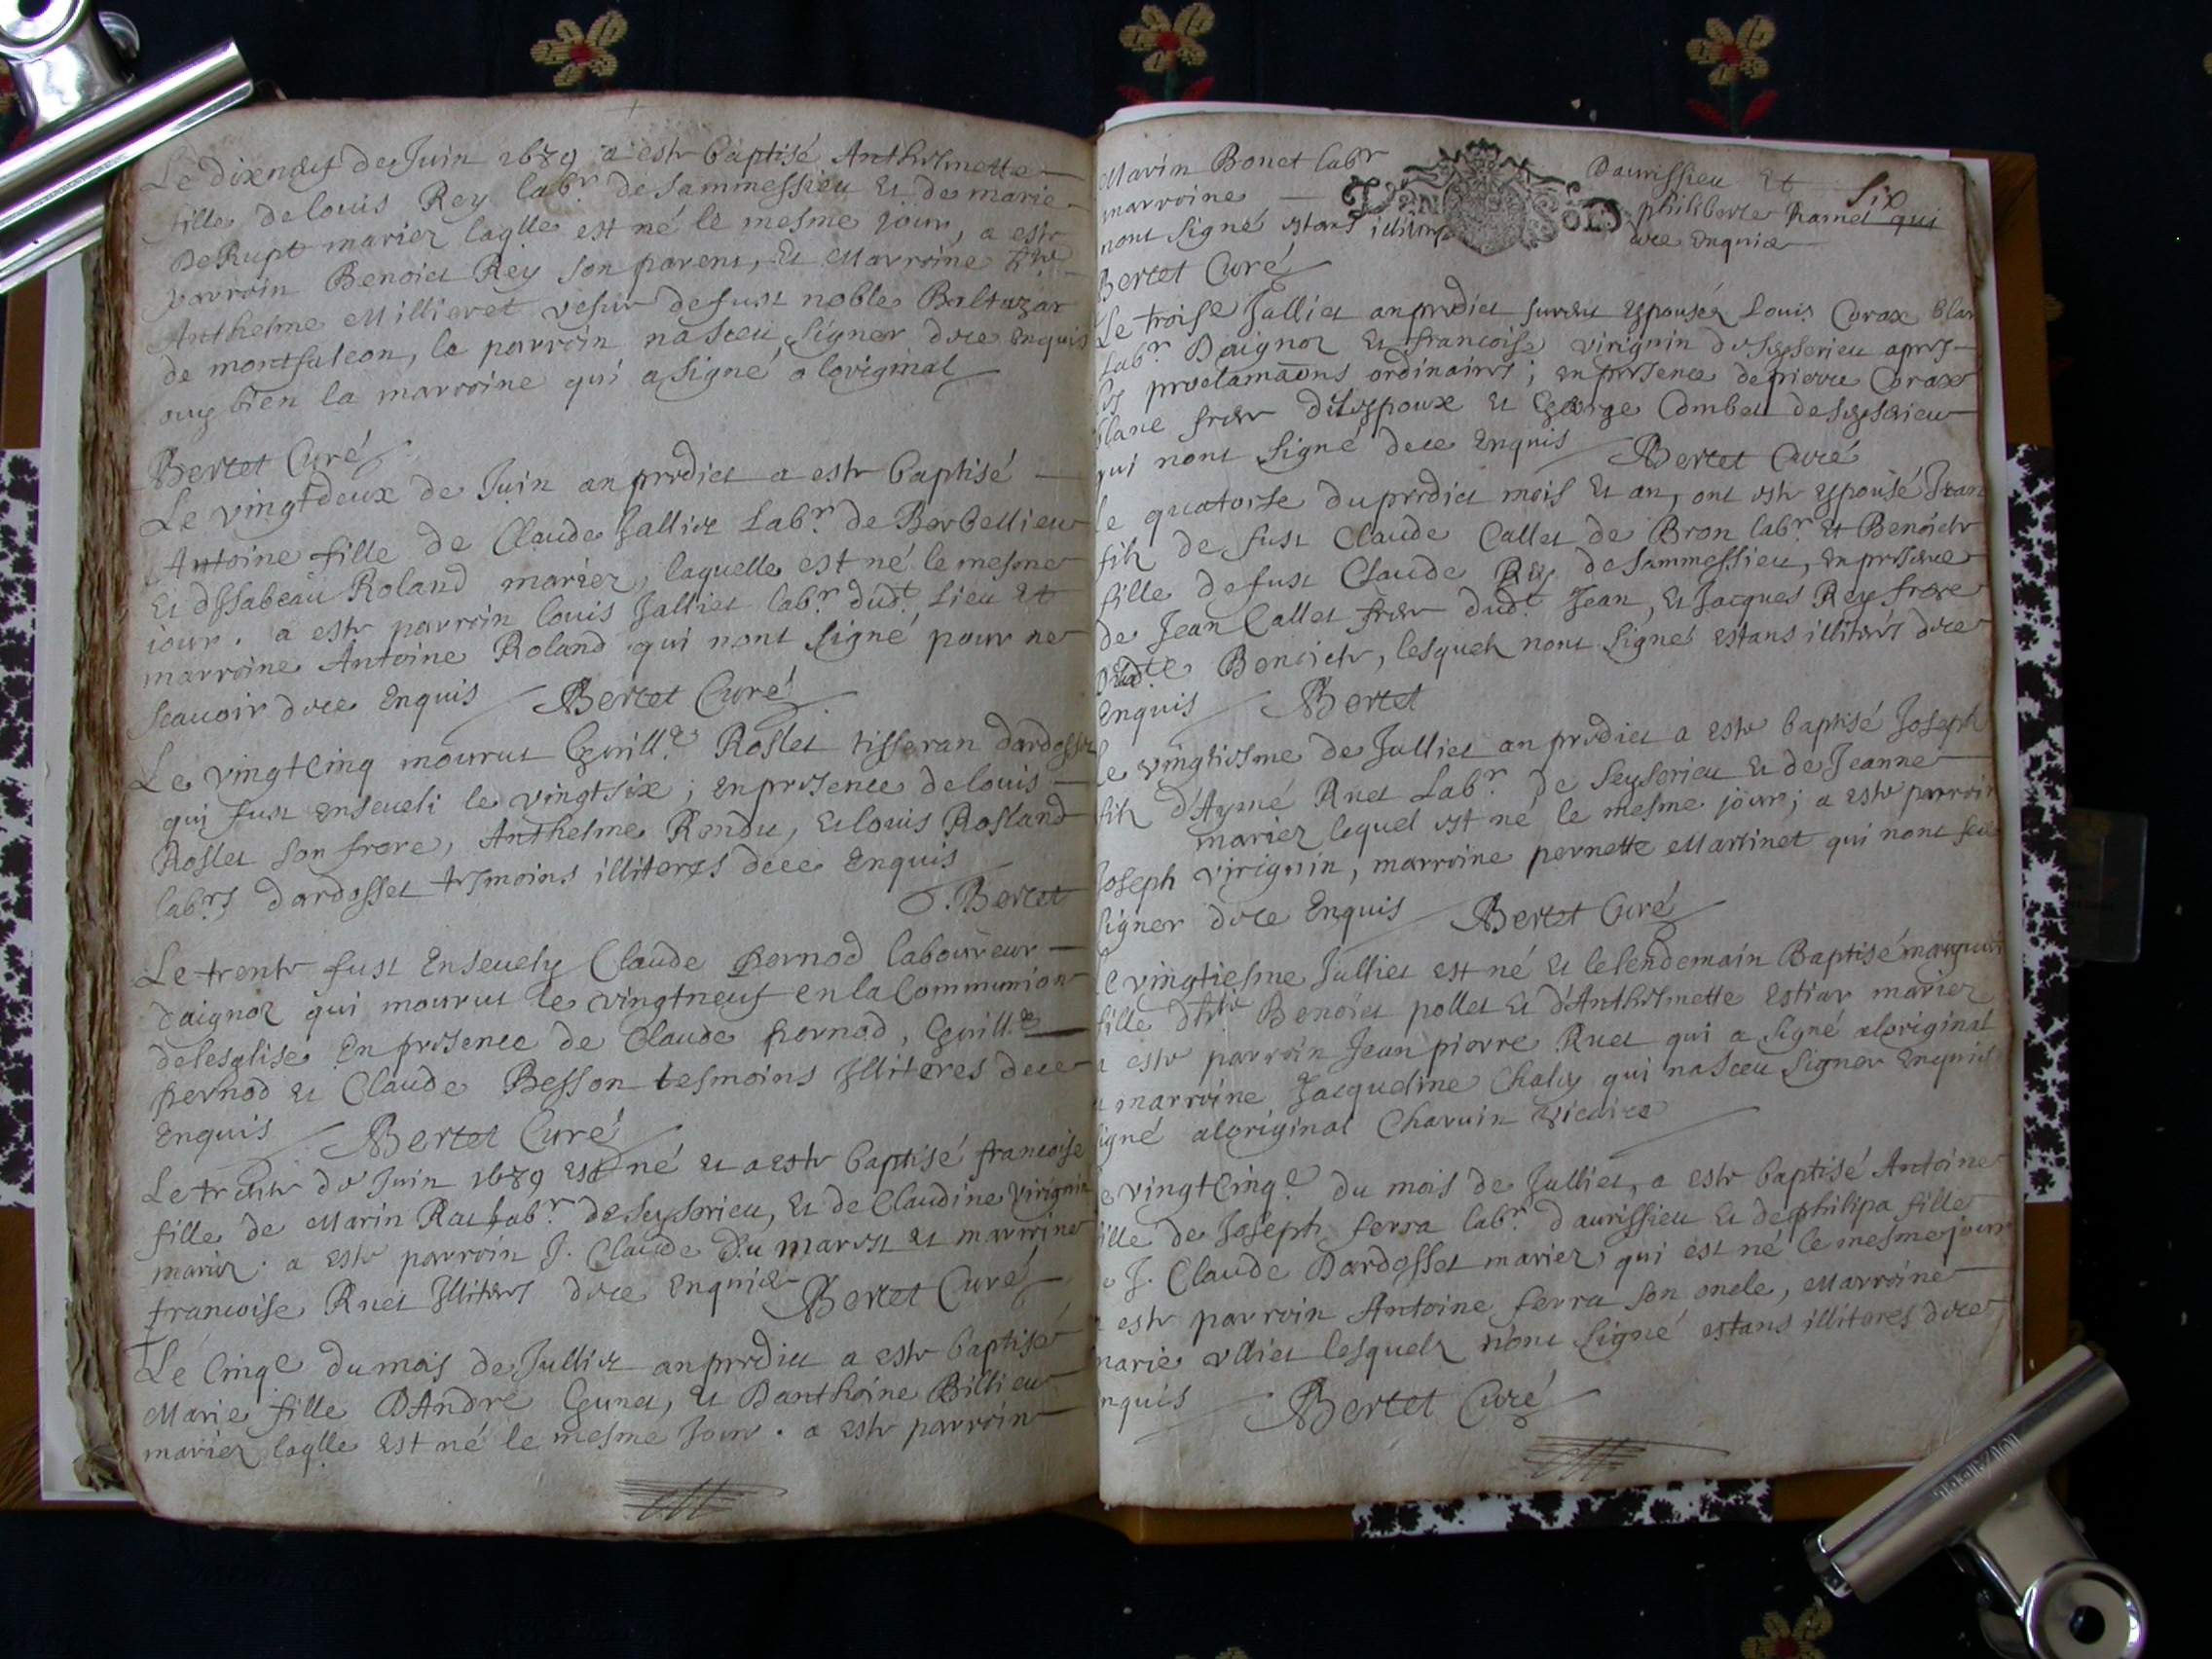 Le dixneuf de Juin 1679 a estr baptisé Anthelmette
fille de louis Rey labr. de Sammessieu et de marie
DeRupt mariez laqlle est né le mesme jour, a estr
parroin Benoict Rey son parent, et Marroine
Anthelme Millieret vefve de fust noble Baltazar
de montfalcon, le parroin na sceu signer dece enquis
ouy bien la marroine qui a signé a loriginal
Bertet Curé
Le vingtdeux de Juin an predict a estr baptisé
Antoine fille de Claude Jalliet Labr. de Barbellieu
et dissabeau Roland mariez, laquelle est né le mesme
jour. a estr parroin louis Jalliet labr. dudt. Lieu et
marroine Antoine Roland qui nont signé pour ne
scauoir dece enquis Bertet Curé
Le vingtcinq mourut Guille Roslet tisseran dardosset
qui fust enseueli le vingtsix; en presence de louis
Roslet son frere, Anthelme Rendu, et louis Rosland
labrs dardosset tesmoins illiteres dece enquis
Bertet
Le trentr fust enseuely Claude pernod laboureur
daignoz qui mourut le vingtneuf en la Communion
de lesglise en presence de Claude pernod, Guille
pernod et Claude Besson tesmoins illiteres dece
enquis Bertet Curé
Le trentr de Juin 1679 est né et a estr baptisé francoise
fille de Marin Rat labr. de seyserieu, et de Claudine virignin
mariez. a estr parroin J. Claude du marest et marroine
francoise Ruet illiteres dece enquis Bertet Curé
Le Cinqe du mois de Julliet an predict a estr baptisé
Marie fille DAndre Gunet, et Danthoine Billieu
mariez laqlle est né le mesme jour. a estr parroin
Marin Bonet labr Daurissieu et Six
marroine philiberte hamet qui
nont signé estans illiteres dece enquis
Bertet Curé
Le troise Julliet an predict furent espousez Louis Corax blan
labr Daignoz et francoise virignin de seyserieu apres
les proclamaons ordinaires; en presence de pierre Corax
blanc frere dit espoux et George Combet de seyserieu
qui nont signé dece enquis Bertet Curé
le quatorse du predict mois et an, ont estr espousé Jean
filz de fust Claude Callet de Bron labr. et Benoicte
fille de fust Claude Rey de Sammessieu, en presence
de Jean Callet frere dudt Jean, et Jacques Rey frere
Benoicte, lesquelz nont signé estans illiteres dece
enquis Bertet
Le vingtiesme de Julliet an predict a estr baptisé Joseph
filz d'Aymé Ruet Labr. de seyserieu et de Jeanne
mariez lequel est né le mesme jour; a estr parroin
Joseph virignin, marroine pernette Martinet qui nont sceu
signer dece enquis Bertet Curé
Le vingtiesme Julliet est né et le lendemain Baptisé marguerite
fille Benoict pollet et d'Anthelmette Estiar mariez
a estr parroin Jean pierre Ruet qui a signé a loriginal
et marroine Jacqueline Chaley qui na sceu signer enquis
signé a loriginal Charuin vicaire
Le vingtcinqe du mois de Julliet, a estr baptisé Antoine
fille de Joseph ferra labr. daurissieu et de philipa fille
de J. Claude Dardosset mariez, qui est né le mesme jour
a estr parroin Antoine ferra son oncle, Marroine
marie vlliet lesquelz n'ont signé estans illiteres dece
enquis Bertet Curé